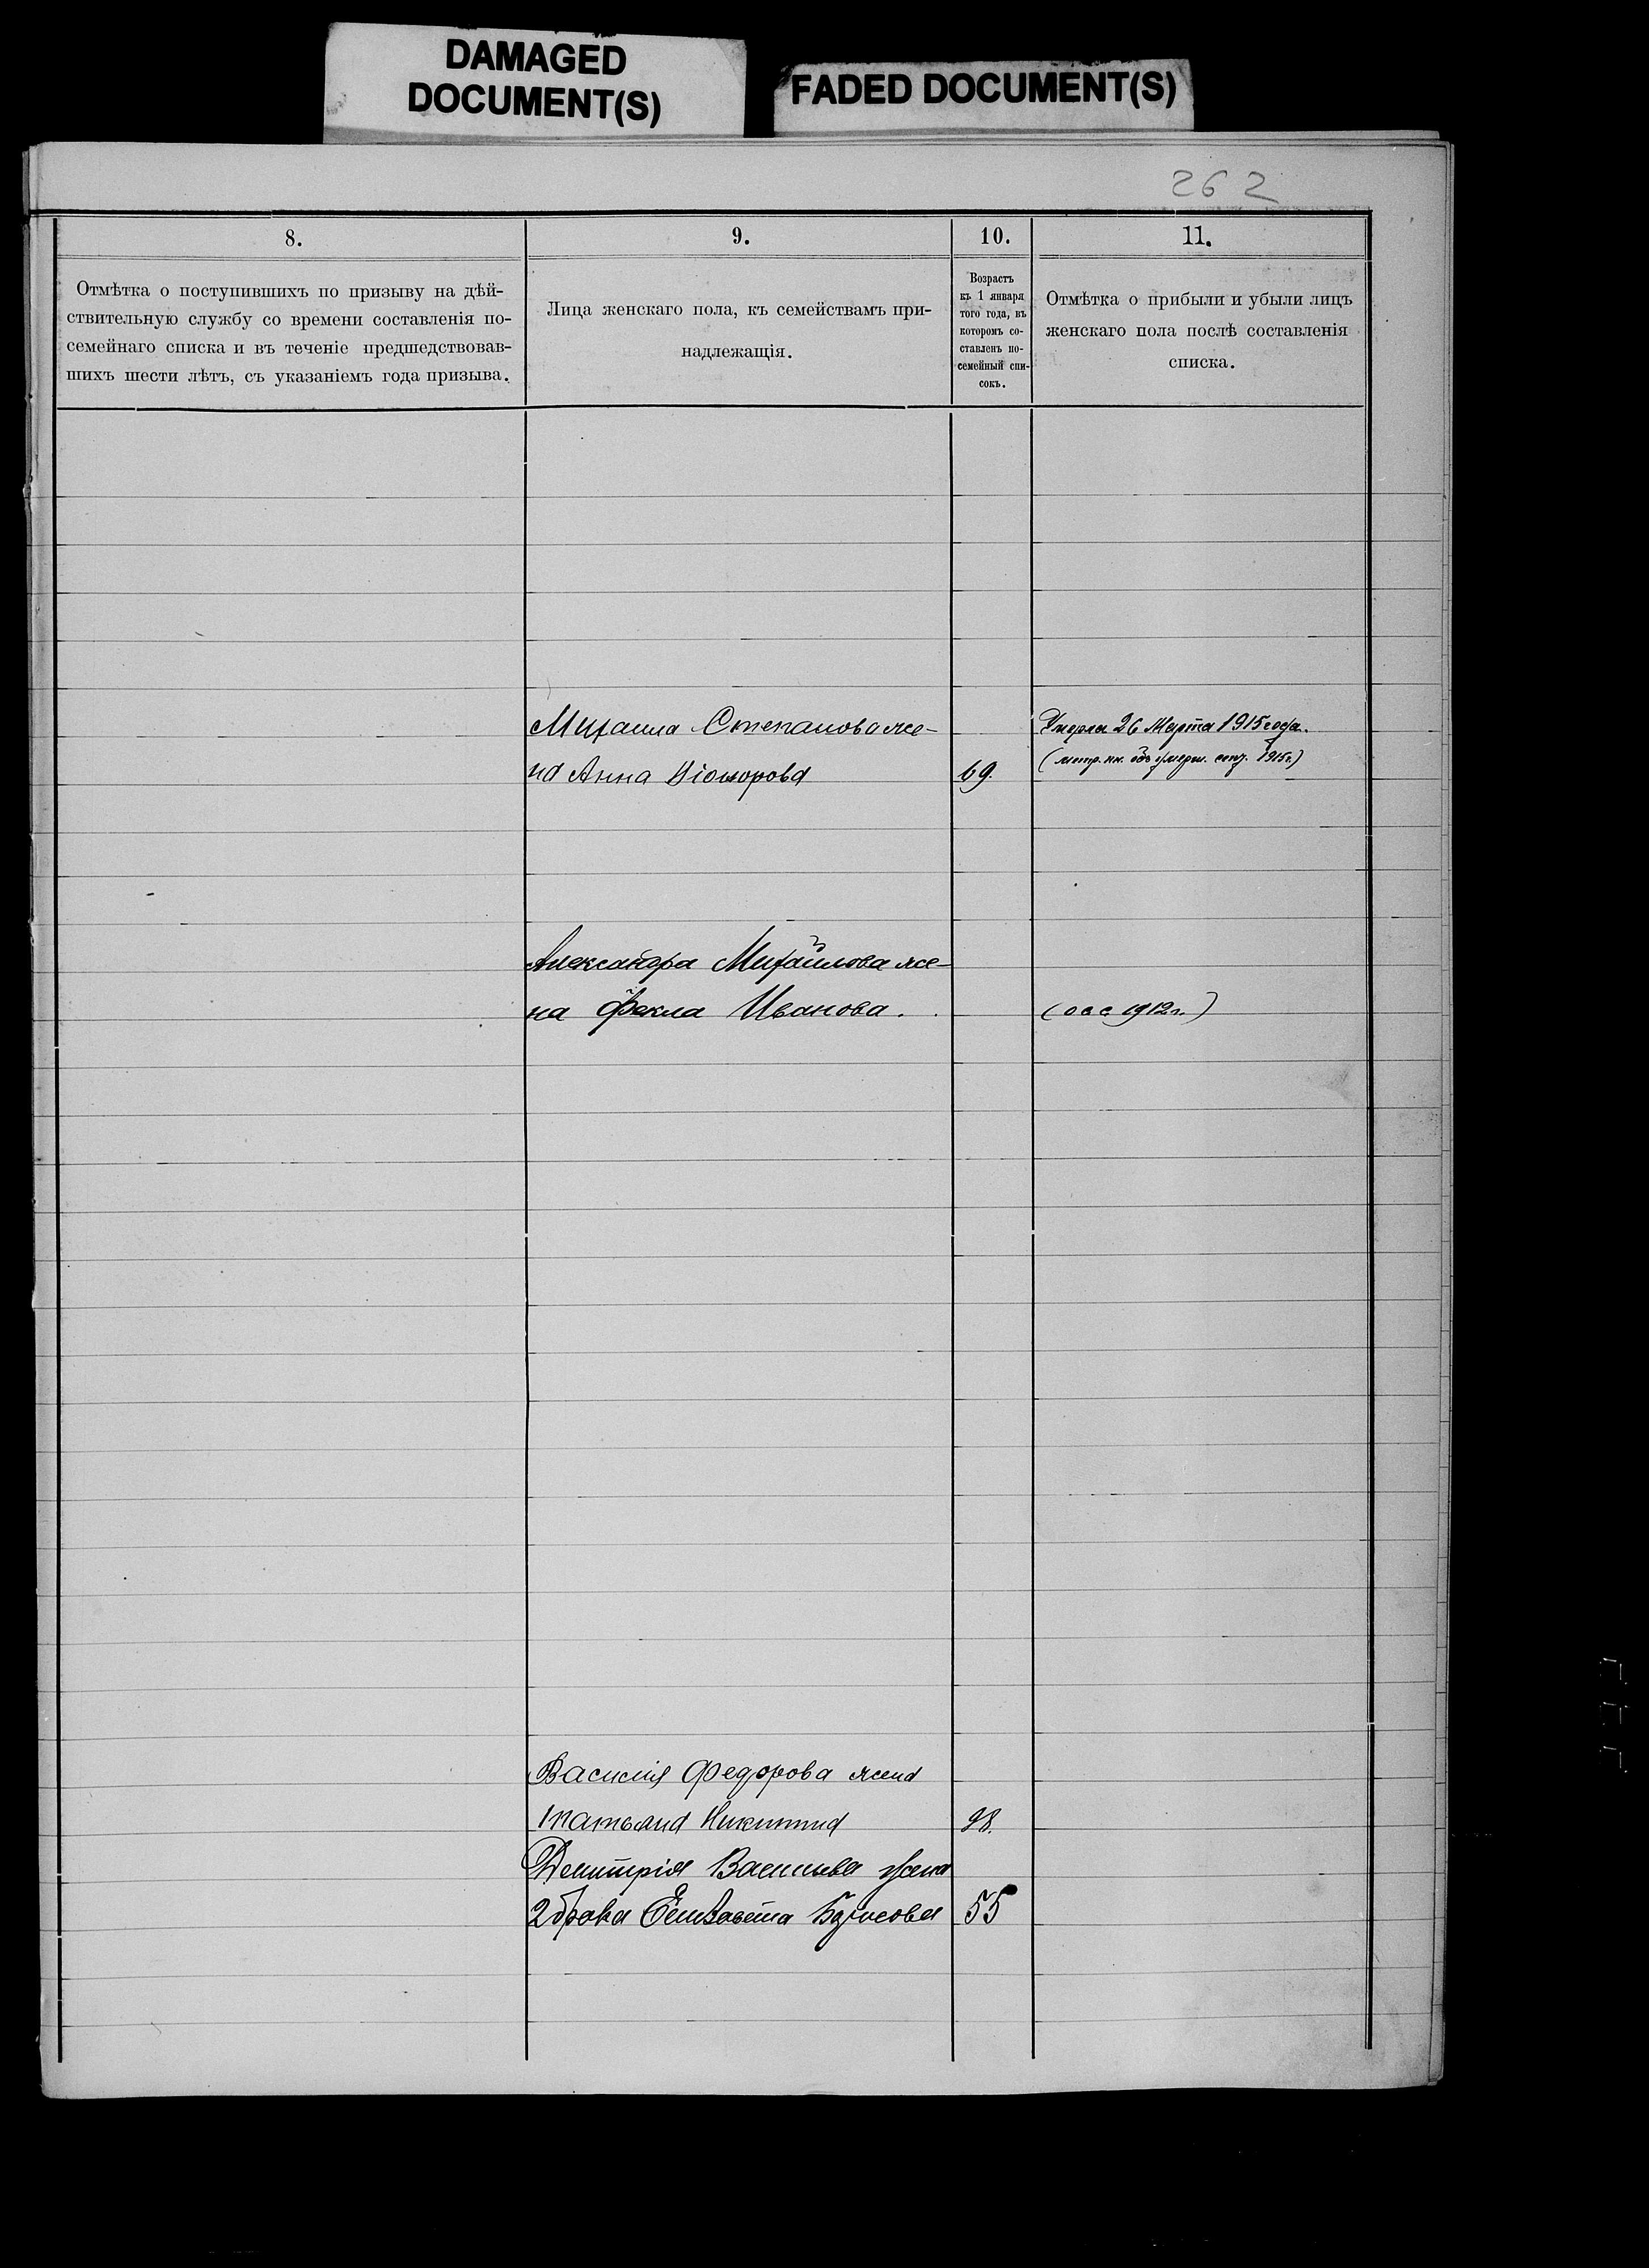 DAMAGED
DOCUMENT(S)
FADED DOCUMENT(S)
262
8.
Отмѣтка о поступившихъ по призыву на дѣй-
ствительную службу со времени составленія по-
семейнаго списка и въ теченіе предшедствовав-
шихъ шести лѣтъ, съ указаніемъ года призыва.
9.
Лица женскаго пола, къ семействамъ при-
надлежащія.
10.
Возрастъ
къ 1 января
того года, въ
которомъ со-
ставленъ по-
семейный спи-
сокъ.
11.
Отмѣтка о прибыли и убыли лицъ
женскаго пола послѣ составленія
списка.
Михаила Степанова же-
на Анна 69
Умерла 26 Марта 1915 года.
(метр. кн. объ умерш. 1915 г.)
Александра Михайлова же-
на Фекла Иванова.
1912 г.)
Василія Федорова жена
Татьяна Никитина 98.
Дмитрія Васильева жена
2 брака Елизавета Борисова 55